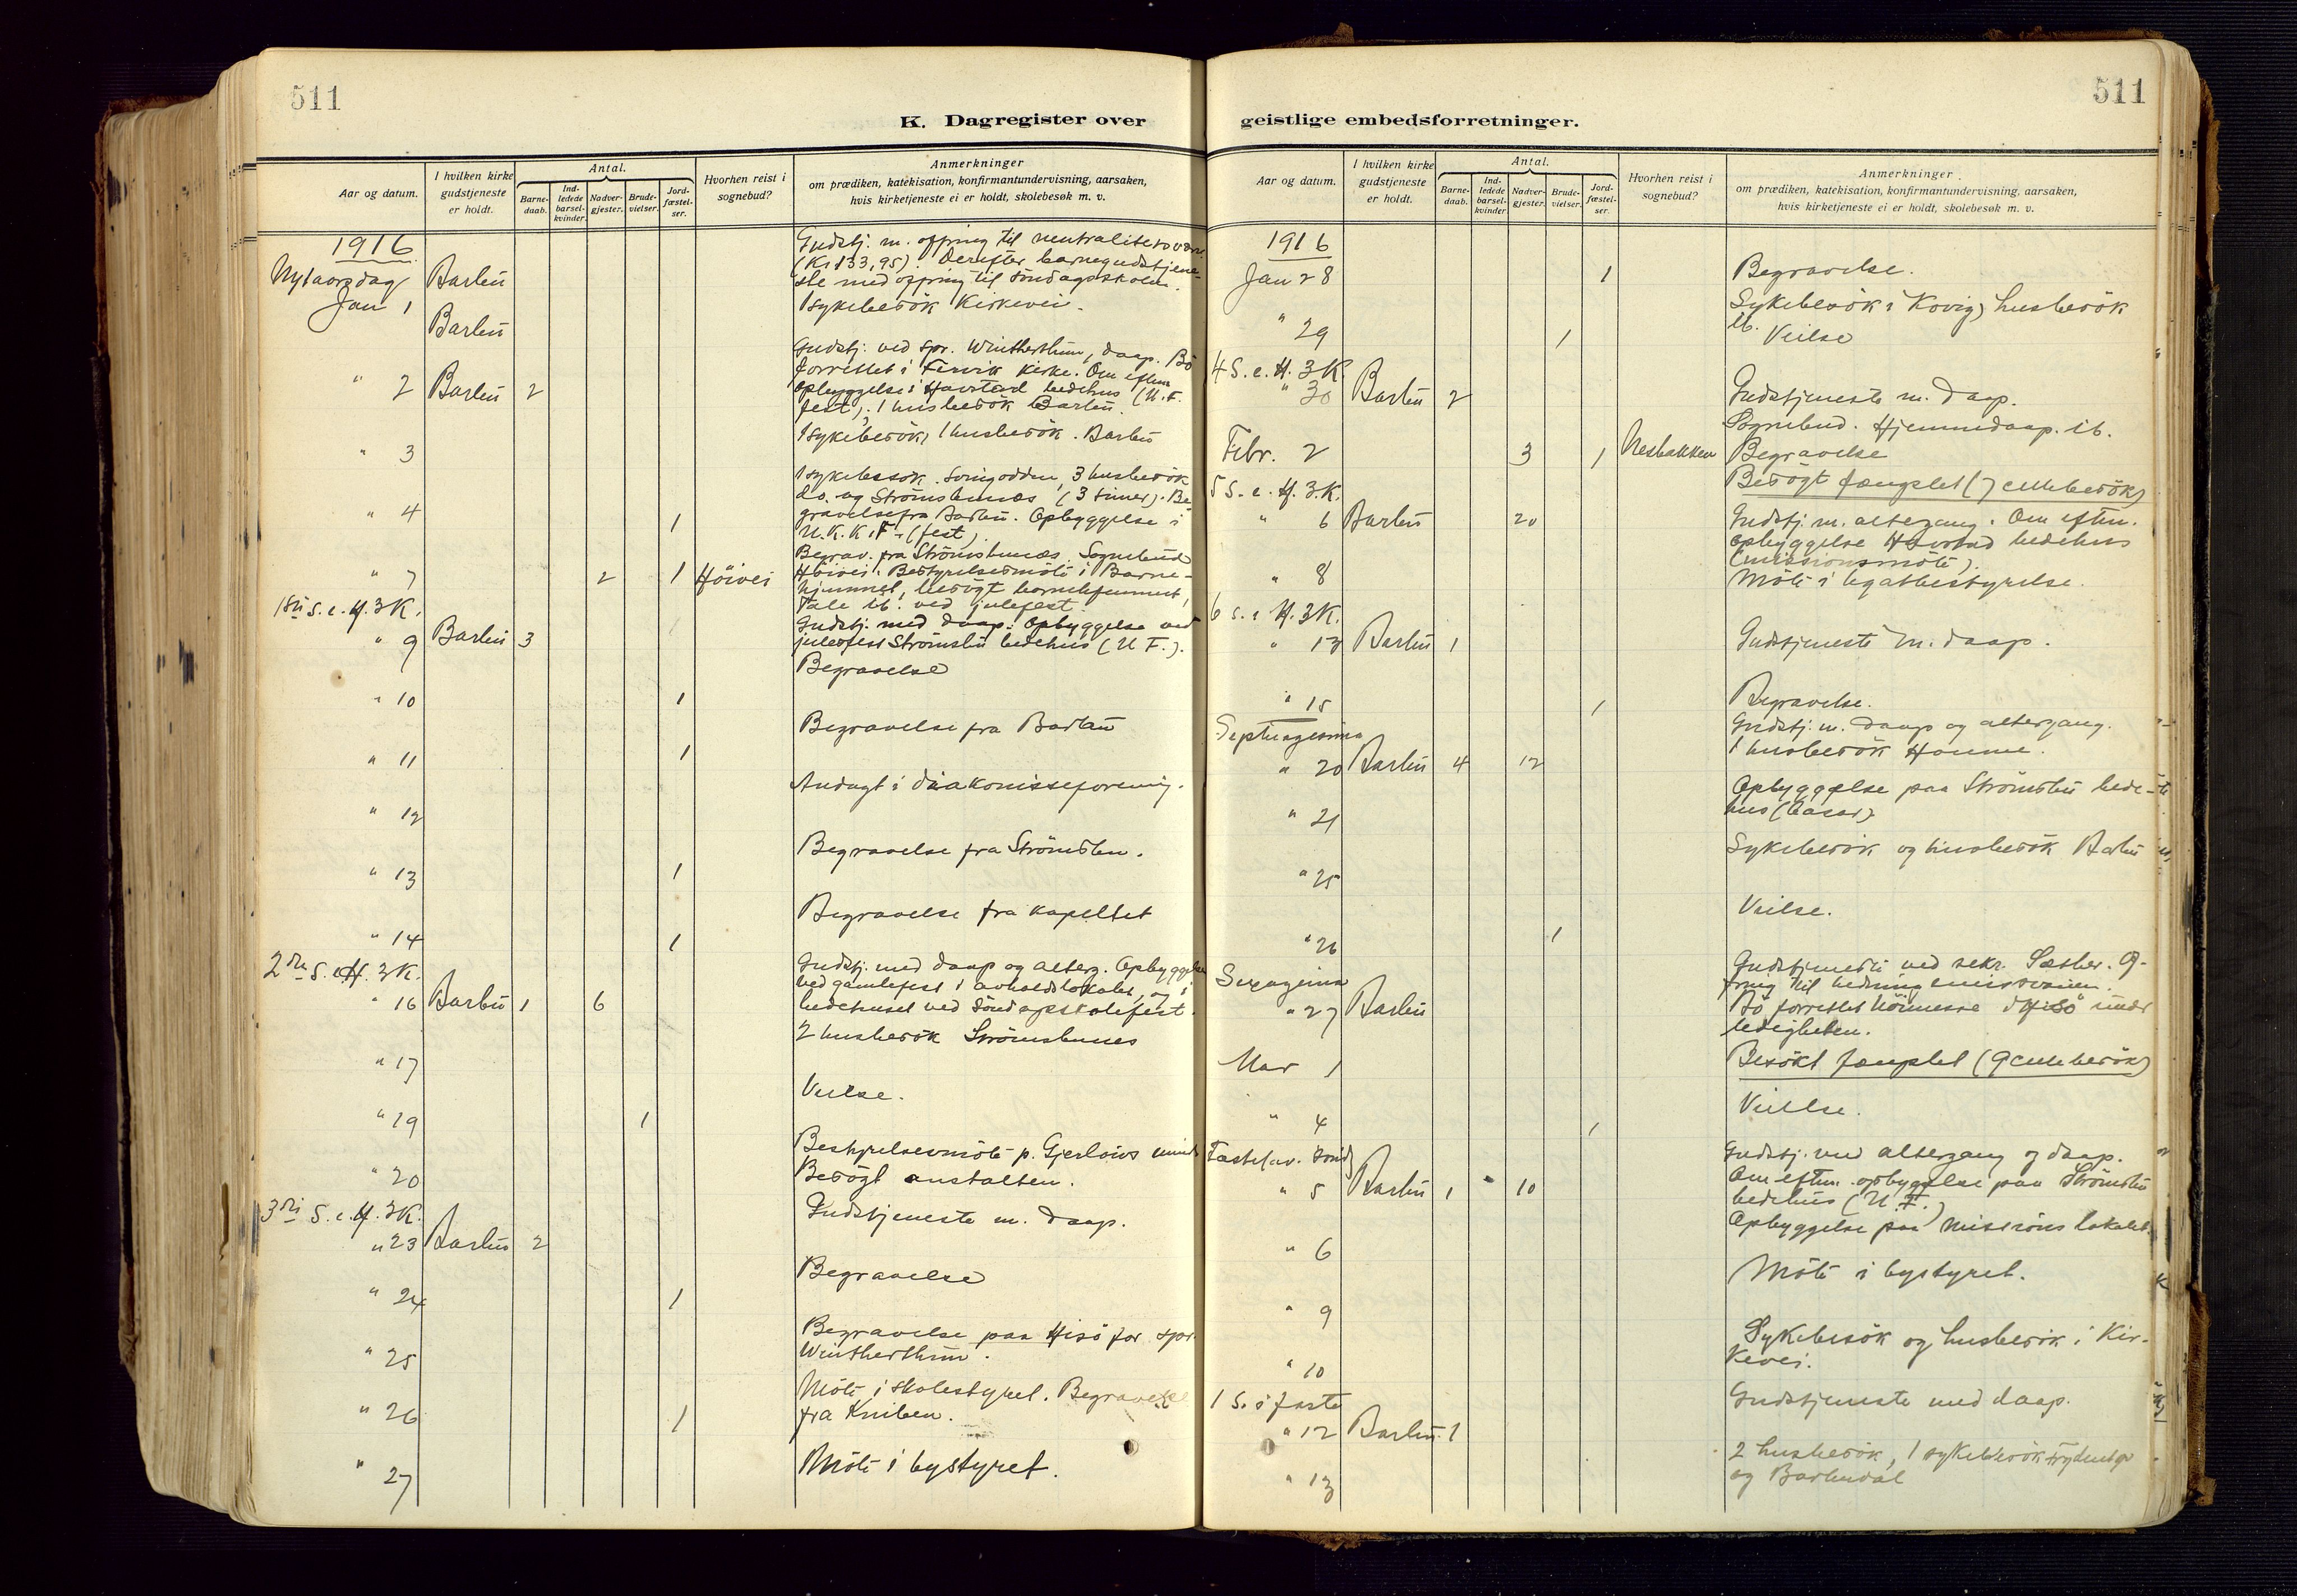 511
K. Dagregister over
Aar og datum.
I hvilken kirke gudstjeneste er holdt.
Antal.
Barne-daab.
Ind-ledede barsel-kvinder.
Nadver-gjester.
Brude-vielser.
Jord-fæstel-ser.
Hvorhen reist i sognebud?
Anmerkninger
om prædiken, katekisation, konfirmantundervisning, aarsaken,
hvis kirketjeneste ei er holdt, skolebesøk m. v.
1916
Nytaarsdag Barbu
Gudstj. m. ofring til neutralitetsværn
(Kr 133,95). Derefter barnegudstjene-
ste med ofring til söndagsskolen.
Jan 1 Barbu
1 sykebesök Kirkevei.
" 2 Barbu 2
Gudstj. ved spr. Winterthun, daap. Bö
forrettet i Fervik kirke. Om eftm
opbyggelse i Havstad bedehus (U.F.
fest), 1 husbesök Barbu.
" 3
1 sykebesök, 1 husbesök. Barbu
" 4 1
1 sykebesök. Songodden, 3 husbesök
do. og Strömsbunæs (3 timer). Be-
gravelse fra Barbu. Opbyggelse i
U.K.K.F. (fest)
" 7 2 1 Höivei
Begrav. fra Strömsbunæs. Sognebud
Höivei. Bestyrelsesmöte i Barne-
hjemmet, besögt barnehjemmet,
Tale ib. ved julefest.
1ste S. e. H. 3 K.
" 9 Barbu 3
Gudstj. med daap. Opbyggelse ved
julefest Strömsbu bedehus (U F.).
" 10 1
Begravelse
" 11 1
Begravelse fra Barbu
" 12
Andagt i diakonisseforening.
" 13 1
Begravelse fra Strömsbu.
" 14 1
Begravelse fra kapellet
2den S. e. H. 3 K.
" 16 Barbu 1 6
Gudstj. med daap og alterg. Opbyggelse
ved gamlefest i avholdslokalet, og i
bedehuset ved Söndagsskolefest.
" 17
2 husbesök Strömsbunes
" 19 1
Vielse.
" 20
Bestyrelsesmöte p. Gjerlöws minde
Besögt anstalten.
3die S. e. H. 3 K.
" 23 Barbu 2
Gudstjeneste m. daap.
" 24 1
Begravelse
" 25
Begravelse paa Hisö for spr.
Winterthun.
" 26 1
Möte i skolestyret. Begravelse
fra Kniben.
" 27
Möte i bystyret.
511
geistlige embedsforretninger.
Aar og datum.
I hvilken kirke gudstjeneste er holdt.
Antal.
Barne-daab.
Ind-ledede barsel-kvinder.
Nadver-gjester.
Brude-vielser.
Jord-fæstel-ser.
Hvorhen reist i sognebud?
Anmerkninger
om prædiken, katekisation, konfirmantundervisning, aarsaken,
hvis kirketjeneste ei er holdt, skolebesøk m. v.
1916
Jan 28 1
Begravelse.
" 29 1
Sykebesök i Kovig, husbesök
ib. Vielse
4 S. e. H. 3 K.
" 30 Barbu 2
Gudstjeneste m. daap.
Febr. 2 3 1 Nesbakken
Sognebud. Hjemmedaap. ib.
Begravelse
Besögt fængslet (7 cellebesök)
5 S. e. H. 3 K.
" 6 Barbu 20
Gudstj. m. altergang. Om eftm.
opbyggelse Havstad bedehus
(missionsmöte).
" 8
Möte i legatbestyrelse.
6 S. e H. 3 K.
" 13 Barbu 1
Gudstjeneste m. daap.
" 15 1
Begravelse.
Septuagesima
" 20 Barbu 4 12
Gudstj. m. daap og altergang.
1 husbesök Homme.
" 21
Opbyggelse paa Strömsbu bede-
hus (basar)
" 25
Sykebesök og husbesök Barbu
" 26 1
Vielse.
Sexagesima
" 27 Barbu
Gudstjeneste ved sekr. Sæther. Of-
ring til hedningemissionen.
Bö forrettet höimesse i Hisö under
ledigheten.
Mar 1
Besökt fængslet (9 cellebesök)
" 4 1
Vielse.
Fastelav. sönd
" 5 Barbu 1 10
Gudstj. med altergang og daap.
Om eftm. opbyggelse paa Strömsbu
bedehus (U. F.)
" 6
Opbyggelse paa missions lokalet.
" 9
Möte i bystyret.
" 10
Sykebesök og husbesök i Kir-
kevei.
1 S. i faste
" 12 Barbu 1
Gudstjeneste med daap.
" 13
2 husbesök, 1 sykebesök
og Barbudal